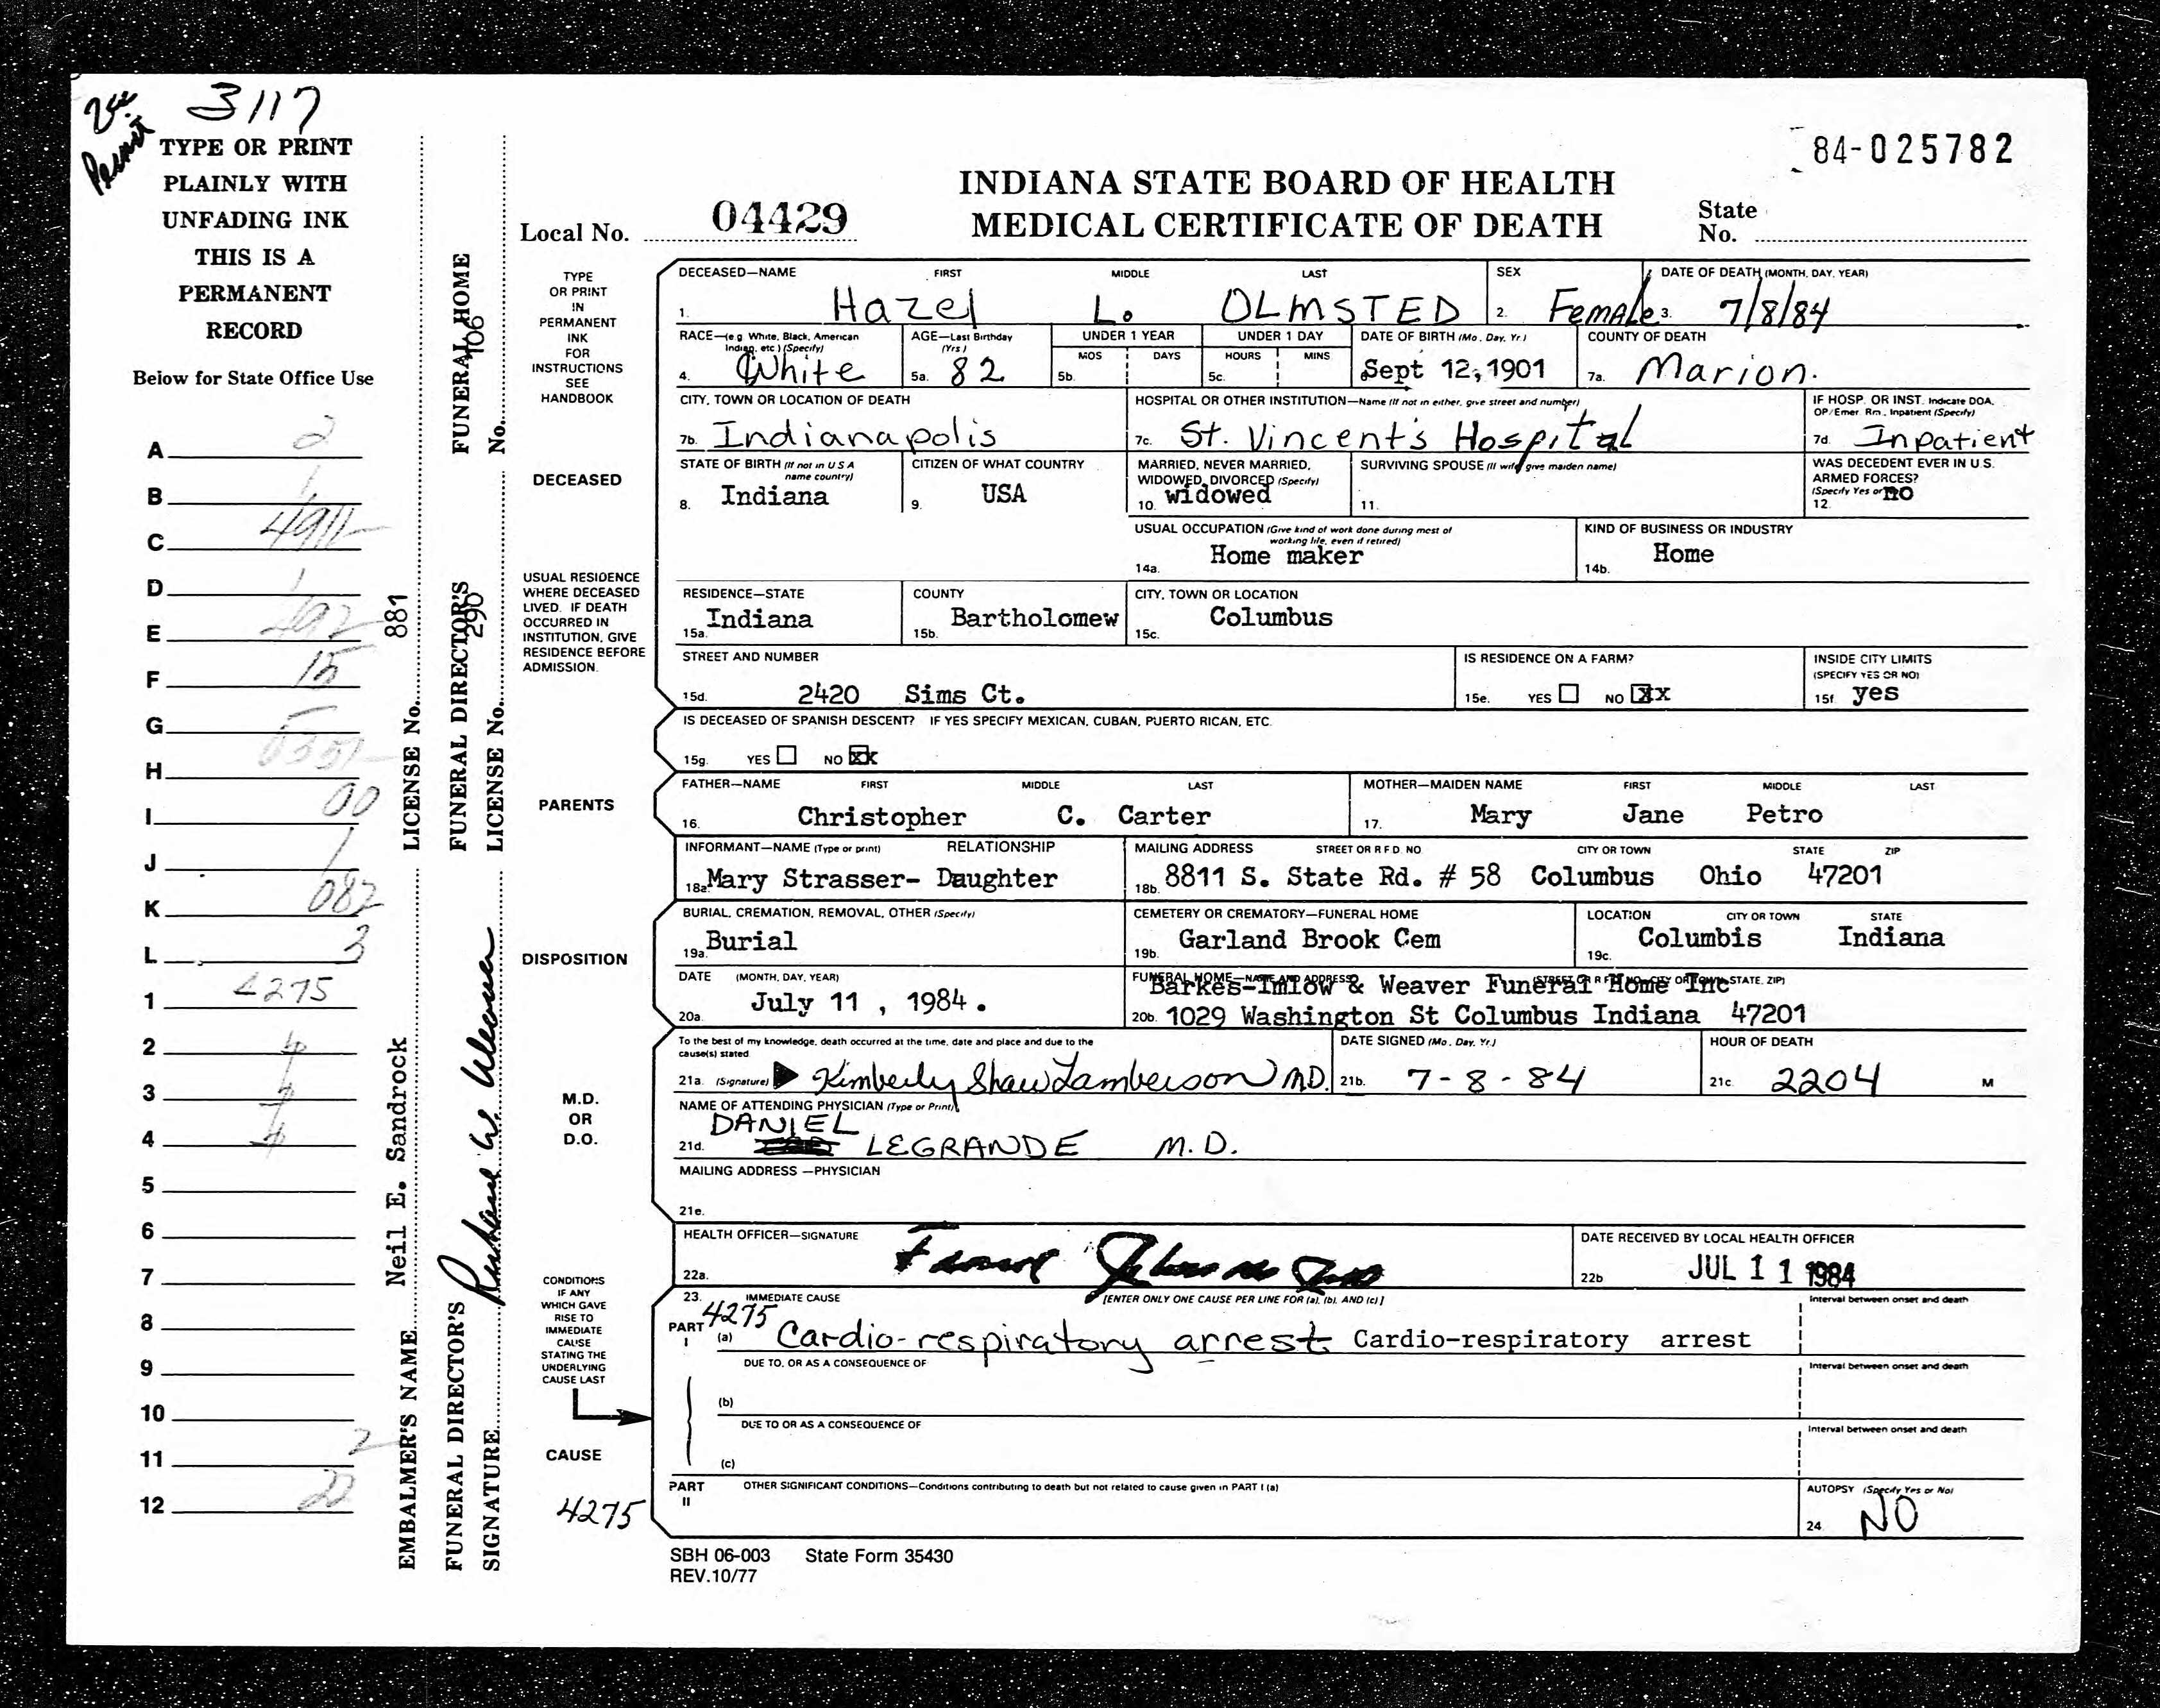 3117
TYPE OR PRINT
PLAINLY WITH
UNFADING INK
THIS IS A
PERMANENT
RECORD
Below for State Office Use
A 2
B 1
C
D 1
E 492
F 15
G
H
I 00
J 1
K 082
L 3
1 4275
2 4
3
4
5
6
7
8
9
10
11 2
12
EMBALMER'S NAME Neil E. Sandrock LICENSE No. 881
FUNERAL DIRECTOR'S FUNERAL DIRECTOR'S FUNERAL HOME
SIGNATURE LICENSE No. 290 No. 106
84-025782
INDIANA STATE BOARD OF HEALTH
MEDICAL CERTIFICATE OF DEATH
Local No. 04429
State
No.
TYPE
OR PRINT
IN
PERMANENT
INK
FOR
INSTRUCTIONS
SEE
HANDBOOK
DECEASED—NAME FIRST MIDDLE LAST SEX DATE OF DEATH (MONTH, DAY, YEAR)
1. Hazel L. OLMSTED 2. Female 3. 7/8/84
RACE—(e.g. White, Black, American AGE—Last Birthday UNDER 1 YEAR UNDER 1 DAY DATE OF BIRTH (Mo., Day, Yr.) COUNTY OF DEATH
Indian, etc.) (Specify) (Yrs.) MOS DAYS HOURS MINS
4. White 5a. 82 5b. 5c. Sept 12, 1901 7a. Marion.
CITY, TOWN OR LOCATION OF DEATH HOSPITAL OR OTHER INSTITUTION—Name (If not in either, give street and number) IF HOSP. OR INST. Indicate DOA,
OP/Emer. Rm., Inpatient (Specify)
7b. Indianapolis 7c. St. Vincent's Hospital 7d. Inpatient
DECEASED
STATE OF BIRTH (If not in U S A CITIZEN OF WHAT COUNTRY MARRIED, NEVER MARRIED, SURVIVING SPOUSE (If wife, give maiden name) WAS DECEDENT EVER IN U.S.
name country) WIDOWED, DIVORCED (Specify) ARMED FORCES?
(Specify Yes or no
8. Indiana 9. USA 10. widowed 11. 12.
USUAL OCCUPATION (Give kind of work done during most of KIND OF BUSINESS OR INDUSTRY
working life, even if retired)
14a. Home maker 14b. Home
USUAL RESIDENCE
WHERE DECEASED
LIVED. IF DEATH
OCCURRED IN
INSTITUTION, GIVE
RESIDENCE BEFORE
ADMISSION.
RESIDENCE—STATE COUNTY CITY, TOWN OR LOCATION
15a. Indiana 15b. Bartholomew 15c. Columbus
STREET AND NUMBER IS RESIDENCE ON A FARM? INSIDE CITY LIMITS
(SPECIFY YES OR NO)
15d. 2420 Sims Ct. 15e. YES NO XX 15f. yes
IS DECEASED OF SPANISH DESCENT? IF YES SPECIFY MEXICAN, CUBAN, PUERTO RICAN, ETC.
15g. YES NO XX
PARENTS
FATHER—NAME FIRST MIDDLE LAST MOTHER—MAIDEN NAME FIRST MIDDLE LAST
16. Christopher C. Carter 17. Mary Jane Petro
INFORMANT—NAME (Type or print) RELATIONSHIP MAILING ADDRESS STREET OR R F D. NO. CITY OR TOWN STATE ZIP
18a. Mary Strasser- Daughter 18b. 8811 S. State Rd. # 58 Columbus Ohio 47201
DISPOSITION
BURIAL, CREMATION, REMOVAL, OTHER (Specify) CEMETERY OR CREMATORY—FUNERAL HOME LOCATION CITY OR TOWN STATE
19a. Burial 19b. Garland Brook Cem 19c. Columbis Indiana
DATE (MONTH, DAY, YEAR) FUNERAL HOME—NAME AND ADDRESS (STREET OR R F D NO., CITY OR TOWN, STATE, ZIP)
Barkes-Imlow & Weaver Funeral Home Inc
20a. July 11 , 1984. 20b. 1029 Washington St Columbus Indiana 47201
M.D.
OR
D.O.
To the best of my knowledge, death occurred at the time, date and place and due to the DATE SIGNED (Mo., Day, Yr.) HOUR OF DEATH
cause(s) stated.
21a. (Signature) Kimberly Shaw Lamberson M.D. 21b. 7-8-84 21c. 2204 M
NAME OF ATTENDING PHYSICIAN (Type or Print)
DANIEL
21d. LEGRANDE M.D.
MAILING ADDRESS —PHYSICIAN
21e.
HEALTH OFFICER—SIGNATURE DATE RECEIVED BY LOCAL HEALTH OFFICER
22a. 22b JUL 11 1984
CONDITIONS
IF ANY
WHICH GAVE
RISE TO
IMMEDIATE
CAUSE
STATING THE
UNDERLYING
CAUSE LAST
CAUSE
4275
23. IMMEDIATE CAUSE [ENTER ONLY ONE CAUSE PER LINE FOR (a), (b), AND (c)] Interval between onset and death
PART I 4275
(a) Cardio-respiratory arrest Cardio-respiratory arrest
DUE TO, OR AS A CONSEQUENCE OF Interval between onset and death
(b)
DUE TO OR AS A CONSEQUENCE OF Interval between onset and death
(c)
PART II OTHER SIGNIFICANT CONDITIONS—Conditions contributing to death but not related to cause given in PART I (a) AUTOPSY (Specify Yes or No)
24. NO
SBH 06-003 State Form 35430
REV.10/77